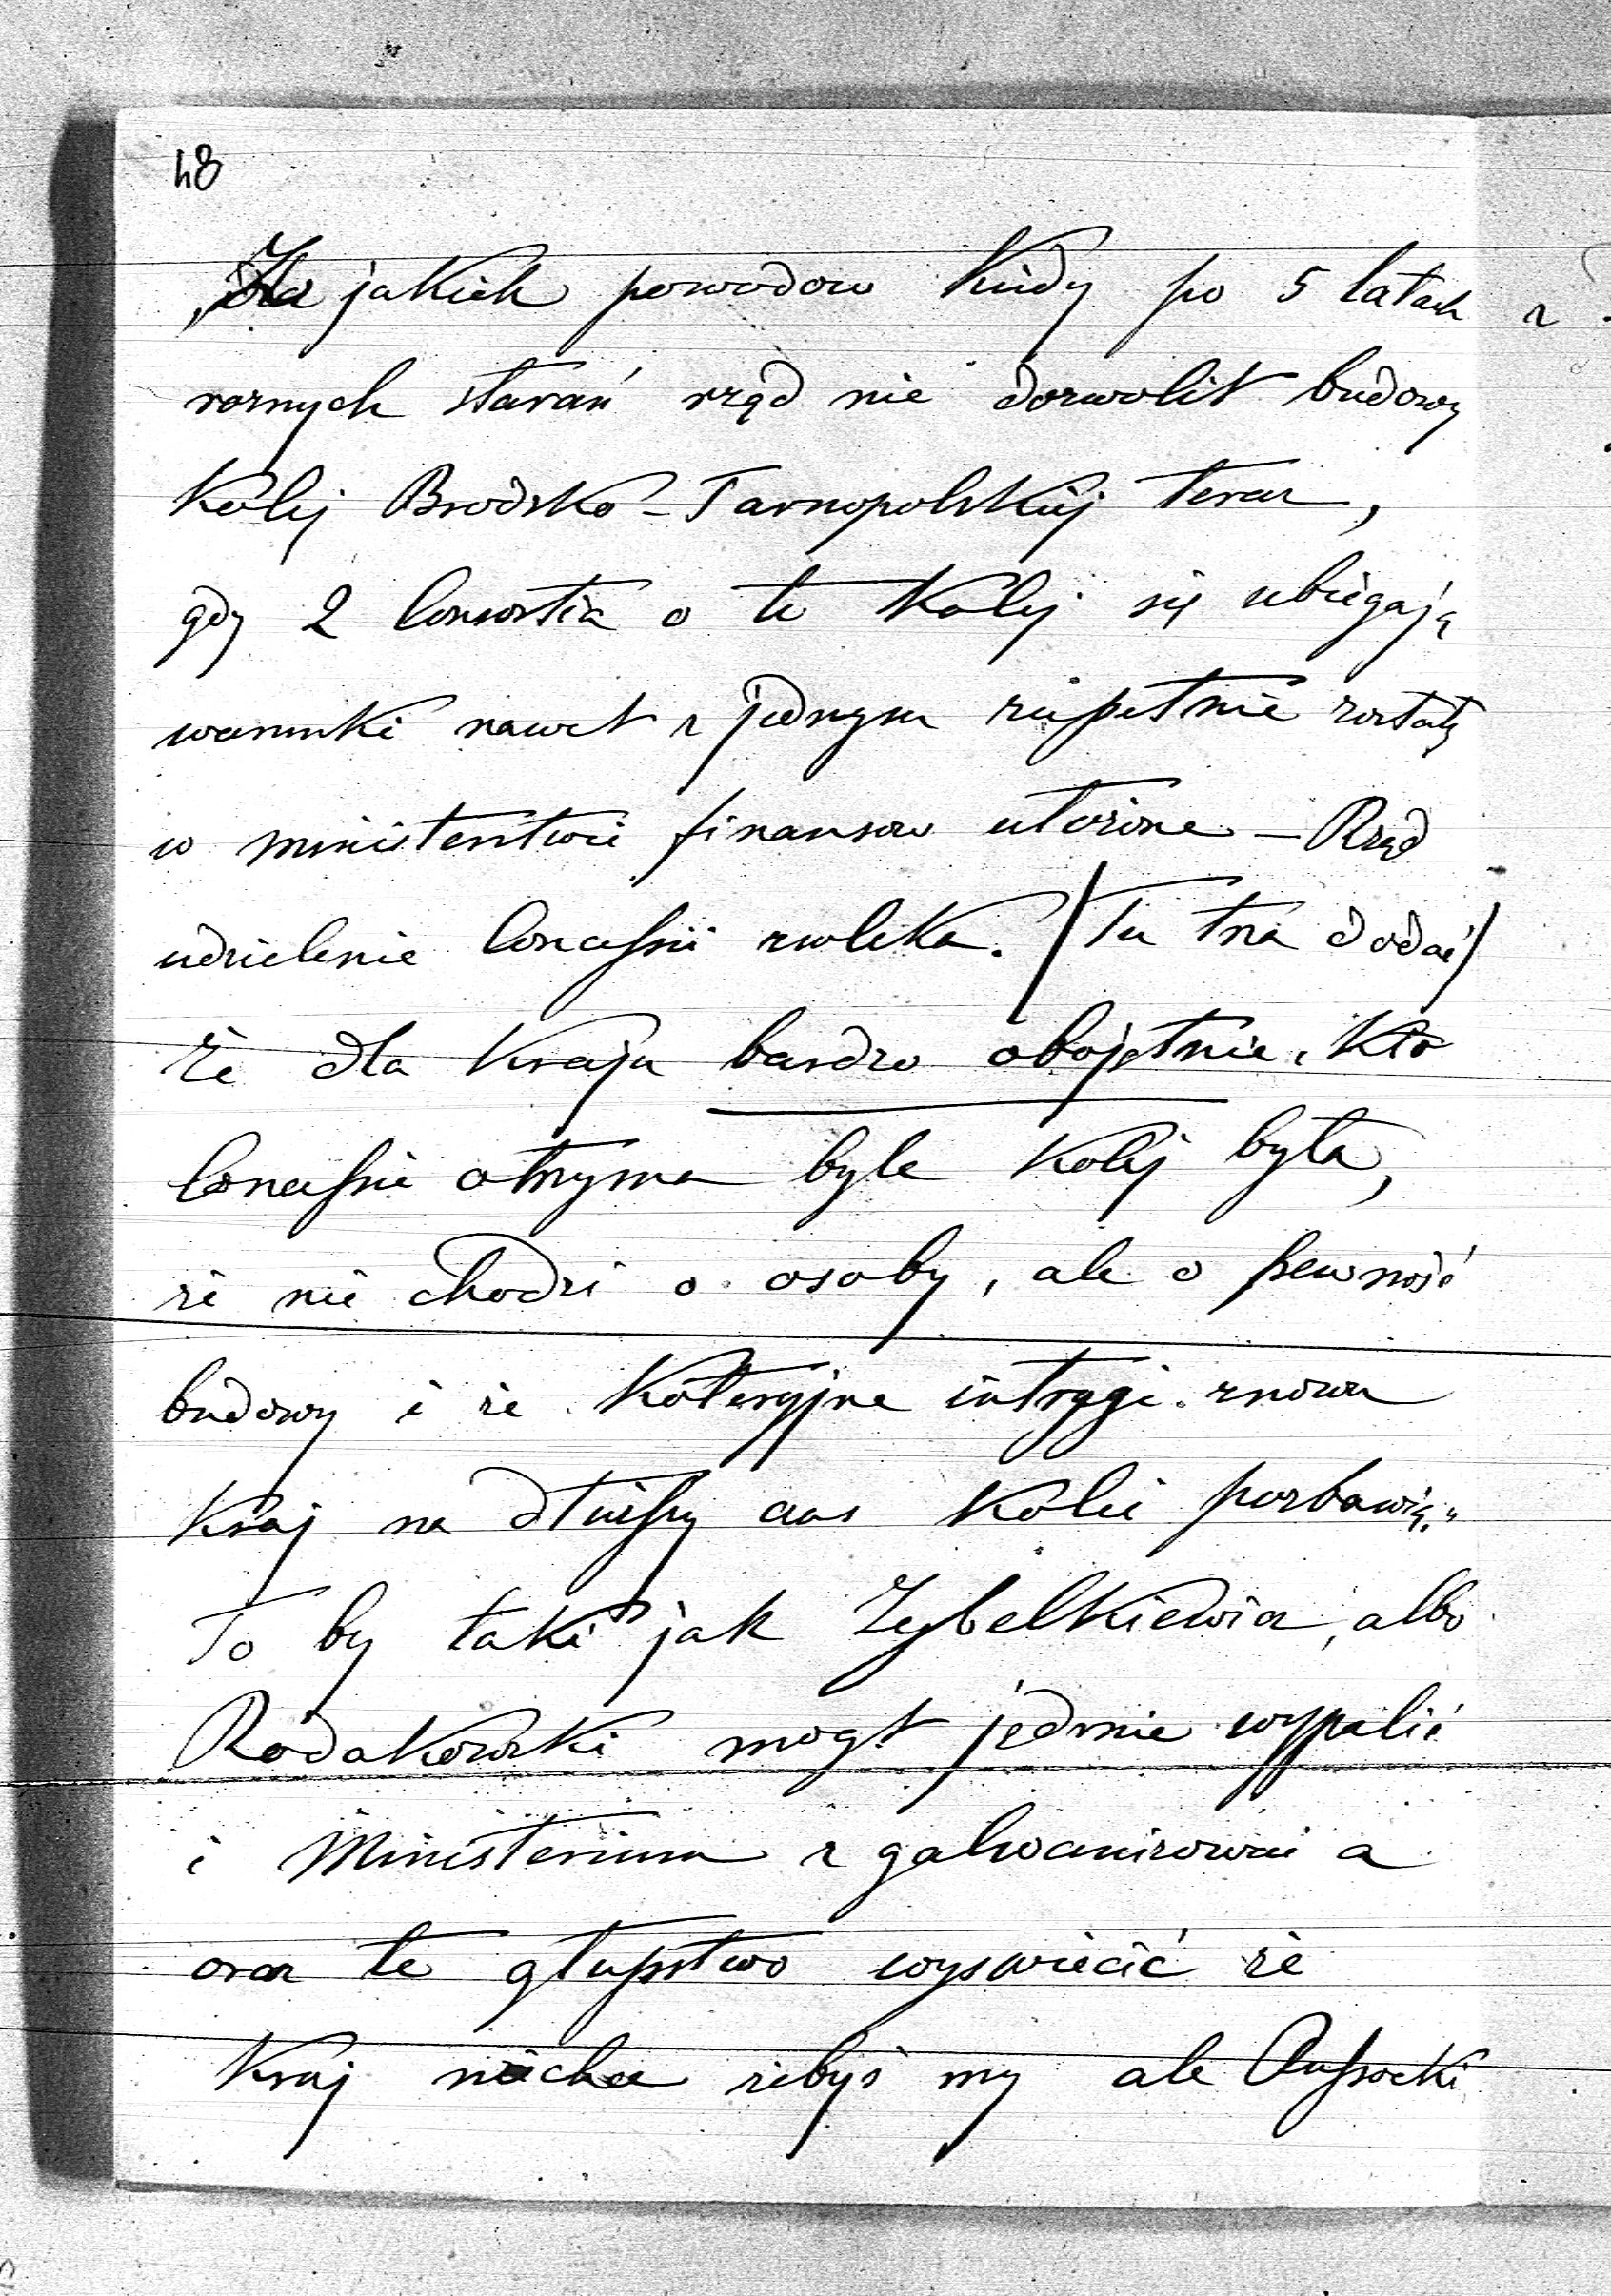 48
„Dla jakich powodow kiedy po 5 latach
roznych starań rząd nie dozwolił budowy
Kolej Brodzko-Tarnopolskiej teraz,
gdy 2 Consortia o te Kolej się ubiegają
warunki nawet z jednym zupełnie zostały
w ministerstwie finansow ułożone – Rząd
udzielenie Concessii zwleka. (Tu trza dodać)
że dla Kraju bardzo obojętnie, kto
Concessie otrzyma byle Kolej była,
że nie chodzi o osoby, ale o pewność
budowy i że Koteryjne intrygi znowu
Kraj na dłuższy czas Kolei pozbawią."
To by taki jak Zybelkiewicz, albo
Rodakowski mogł jędrnie wypalić
i Ministerium z galwanizować a
oraz te głupstwo wyswiecić że
Kraj niechce żebyś my ale Russocki